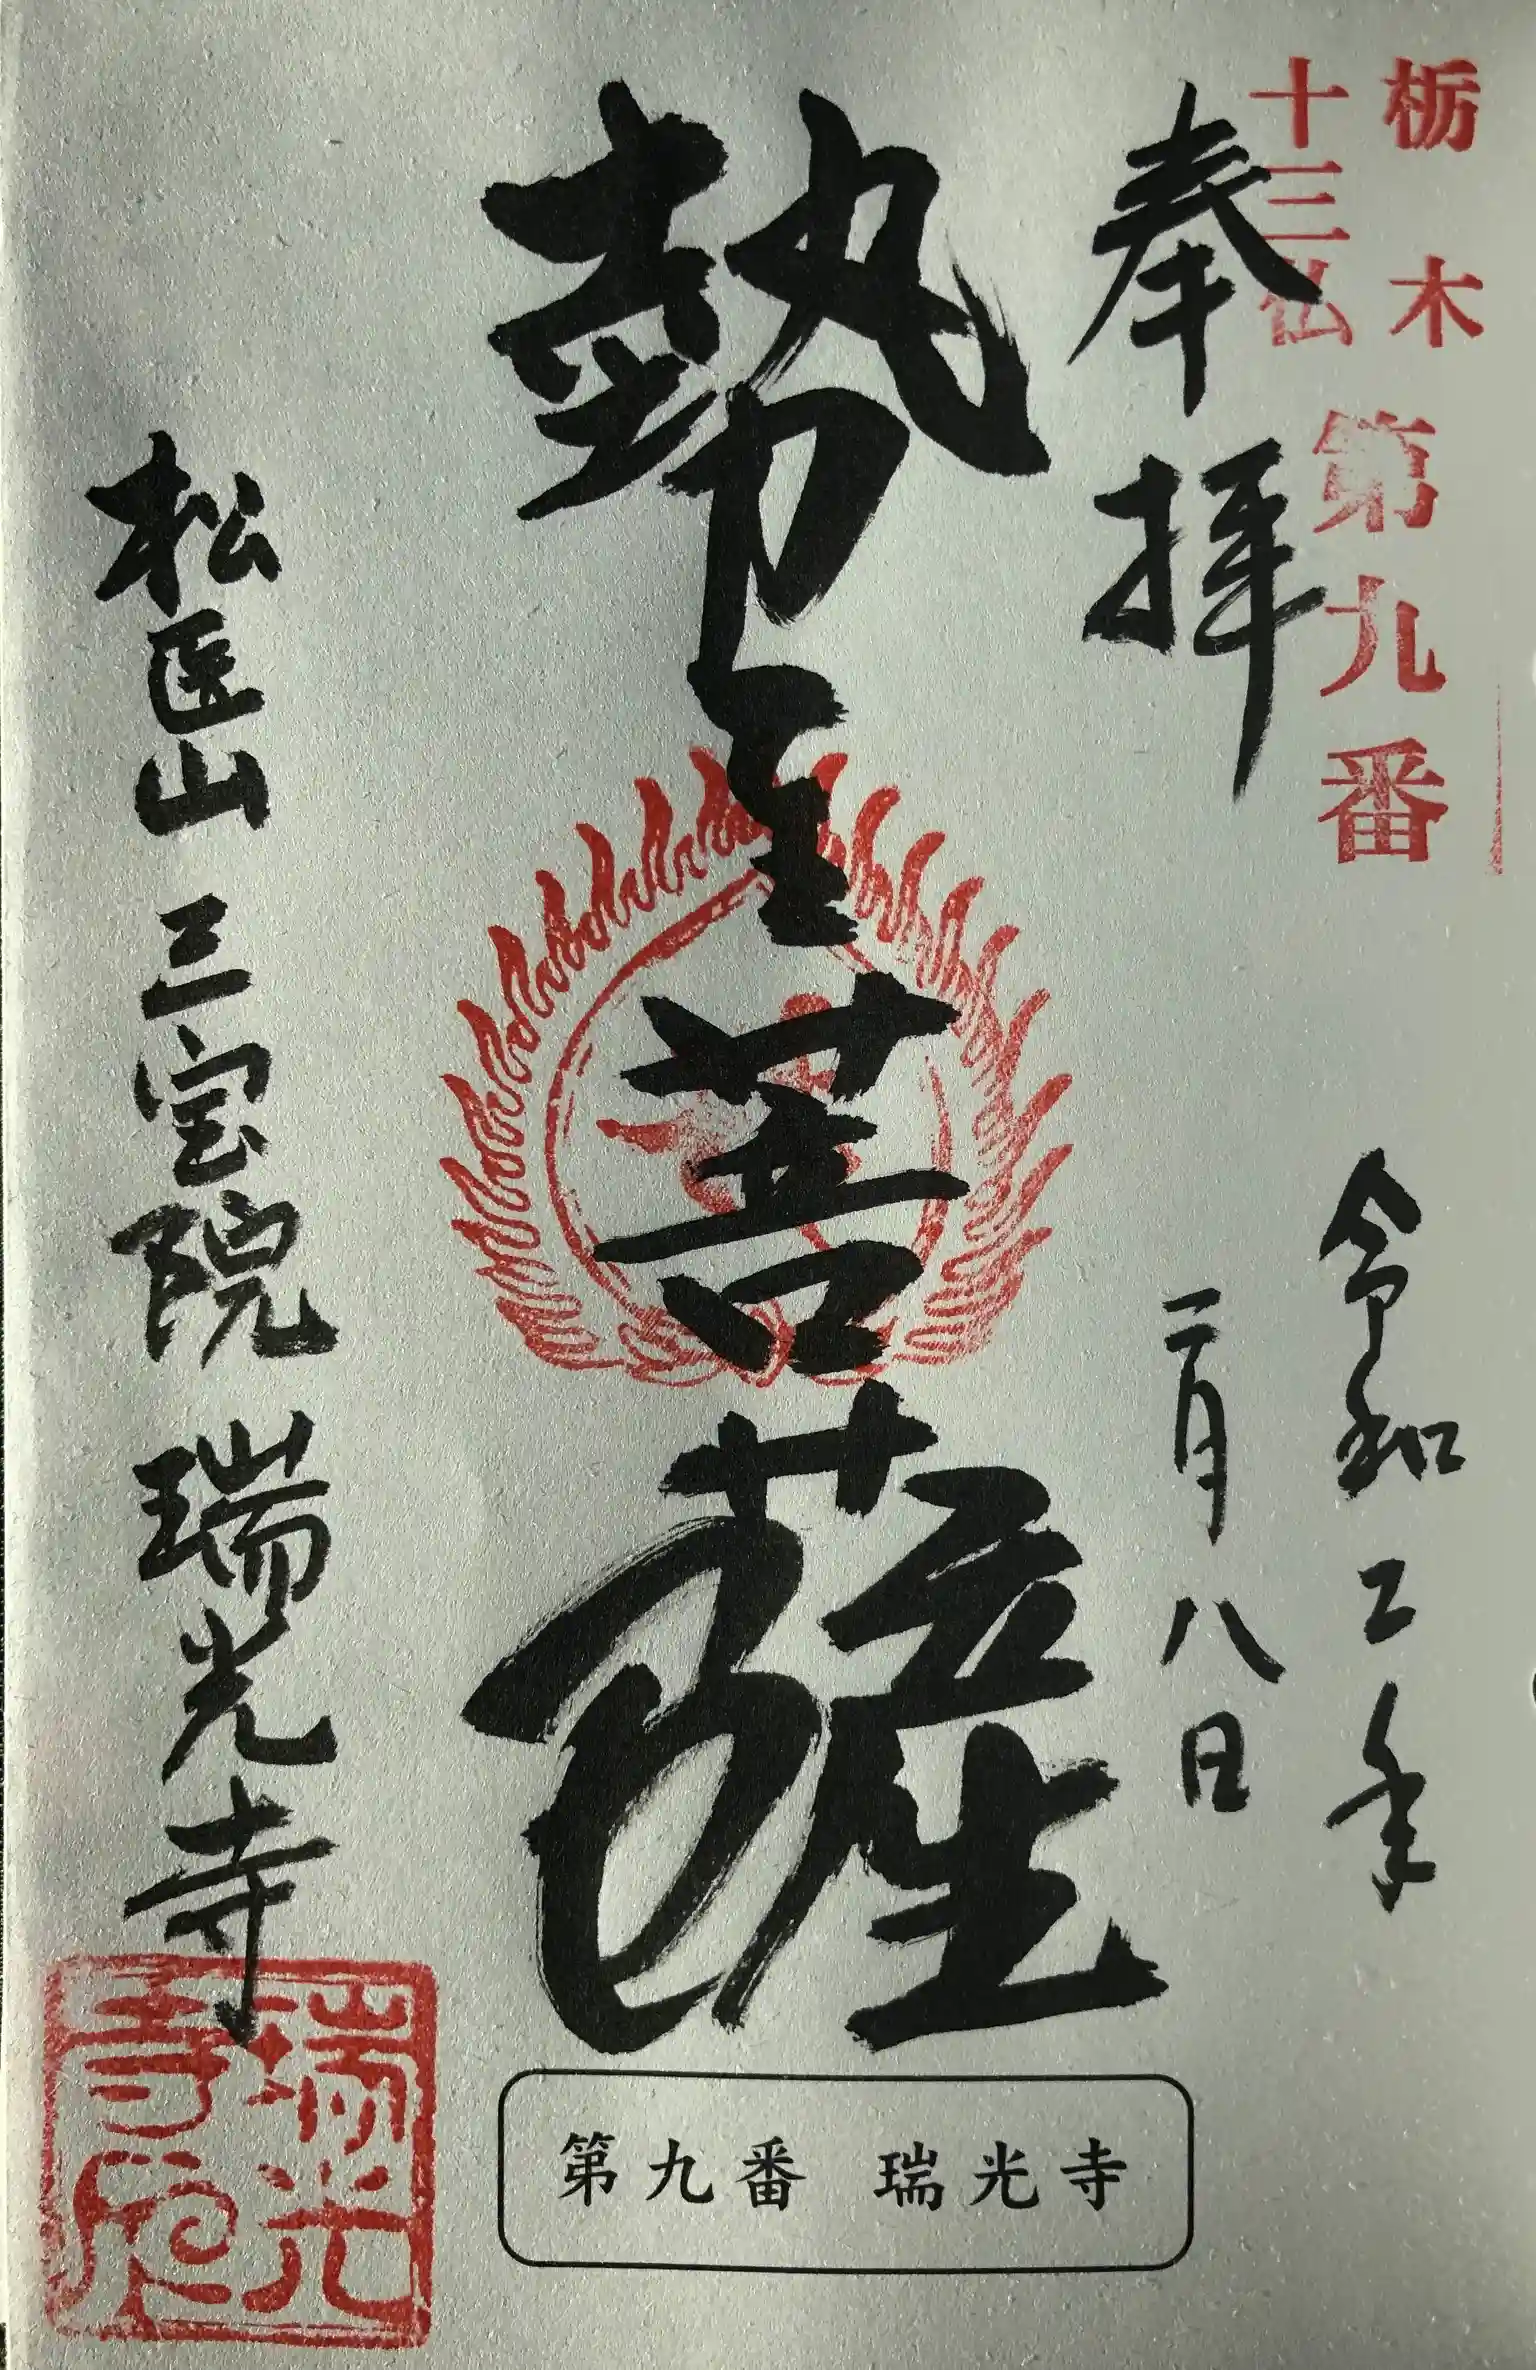 栃木
十三仏
第九番
奉拝
令和二年
二月八日
勢至菩薩
松医山 三宝院 瑞光寺
瑞光
寺印
第九番 瑞光寺